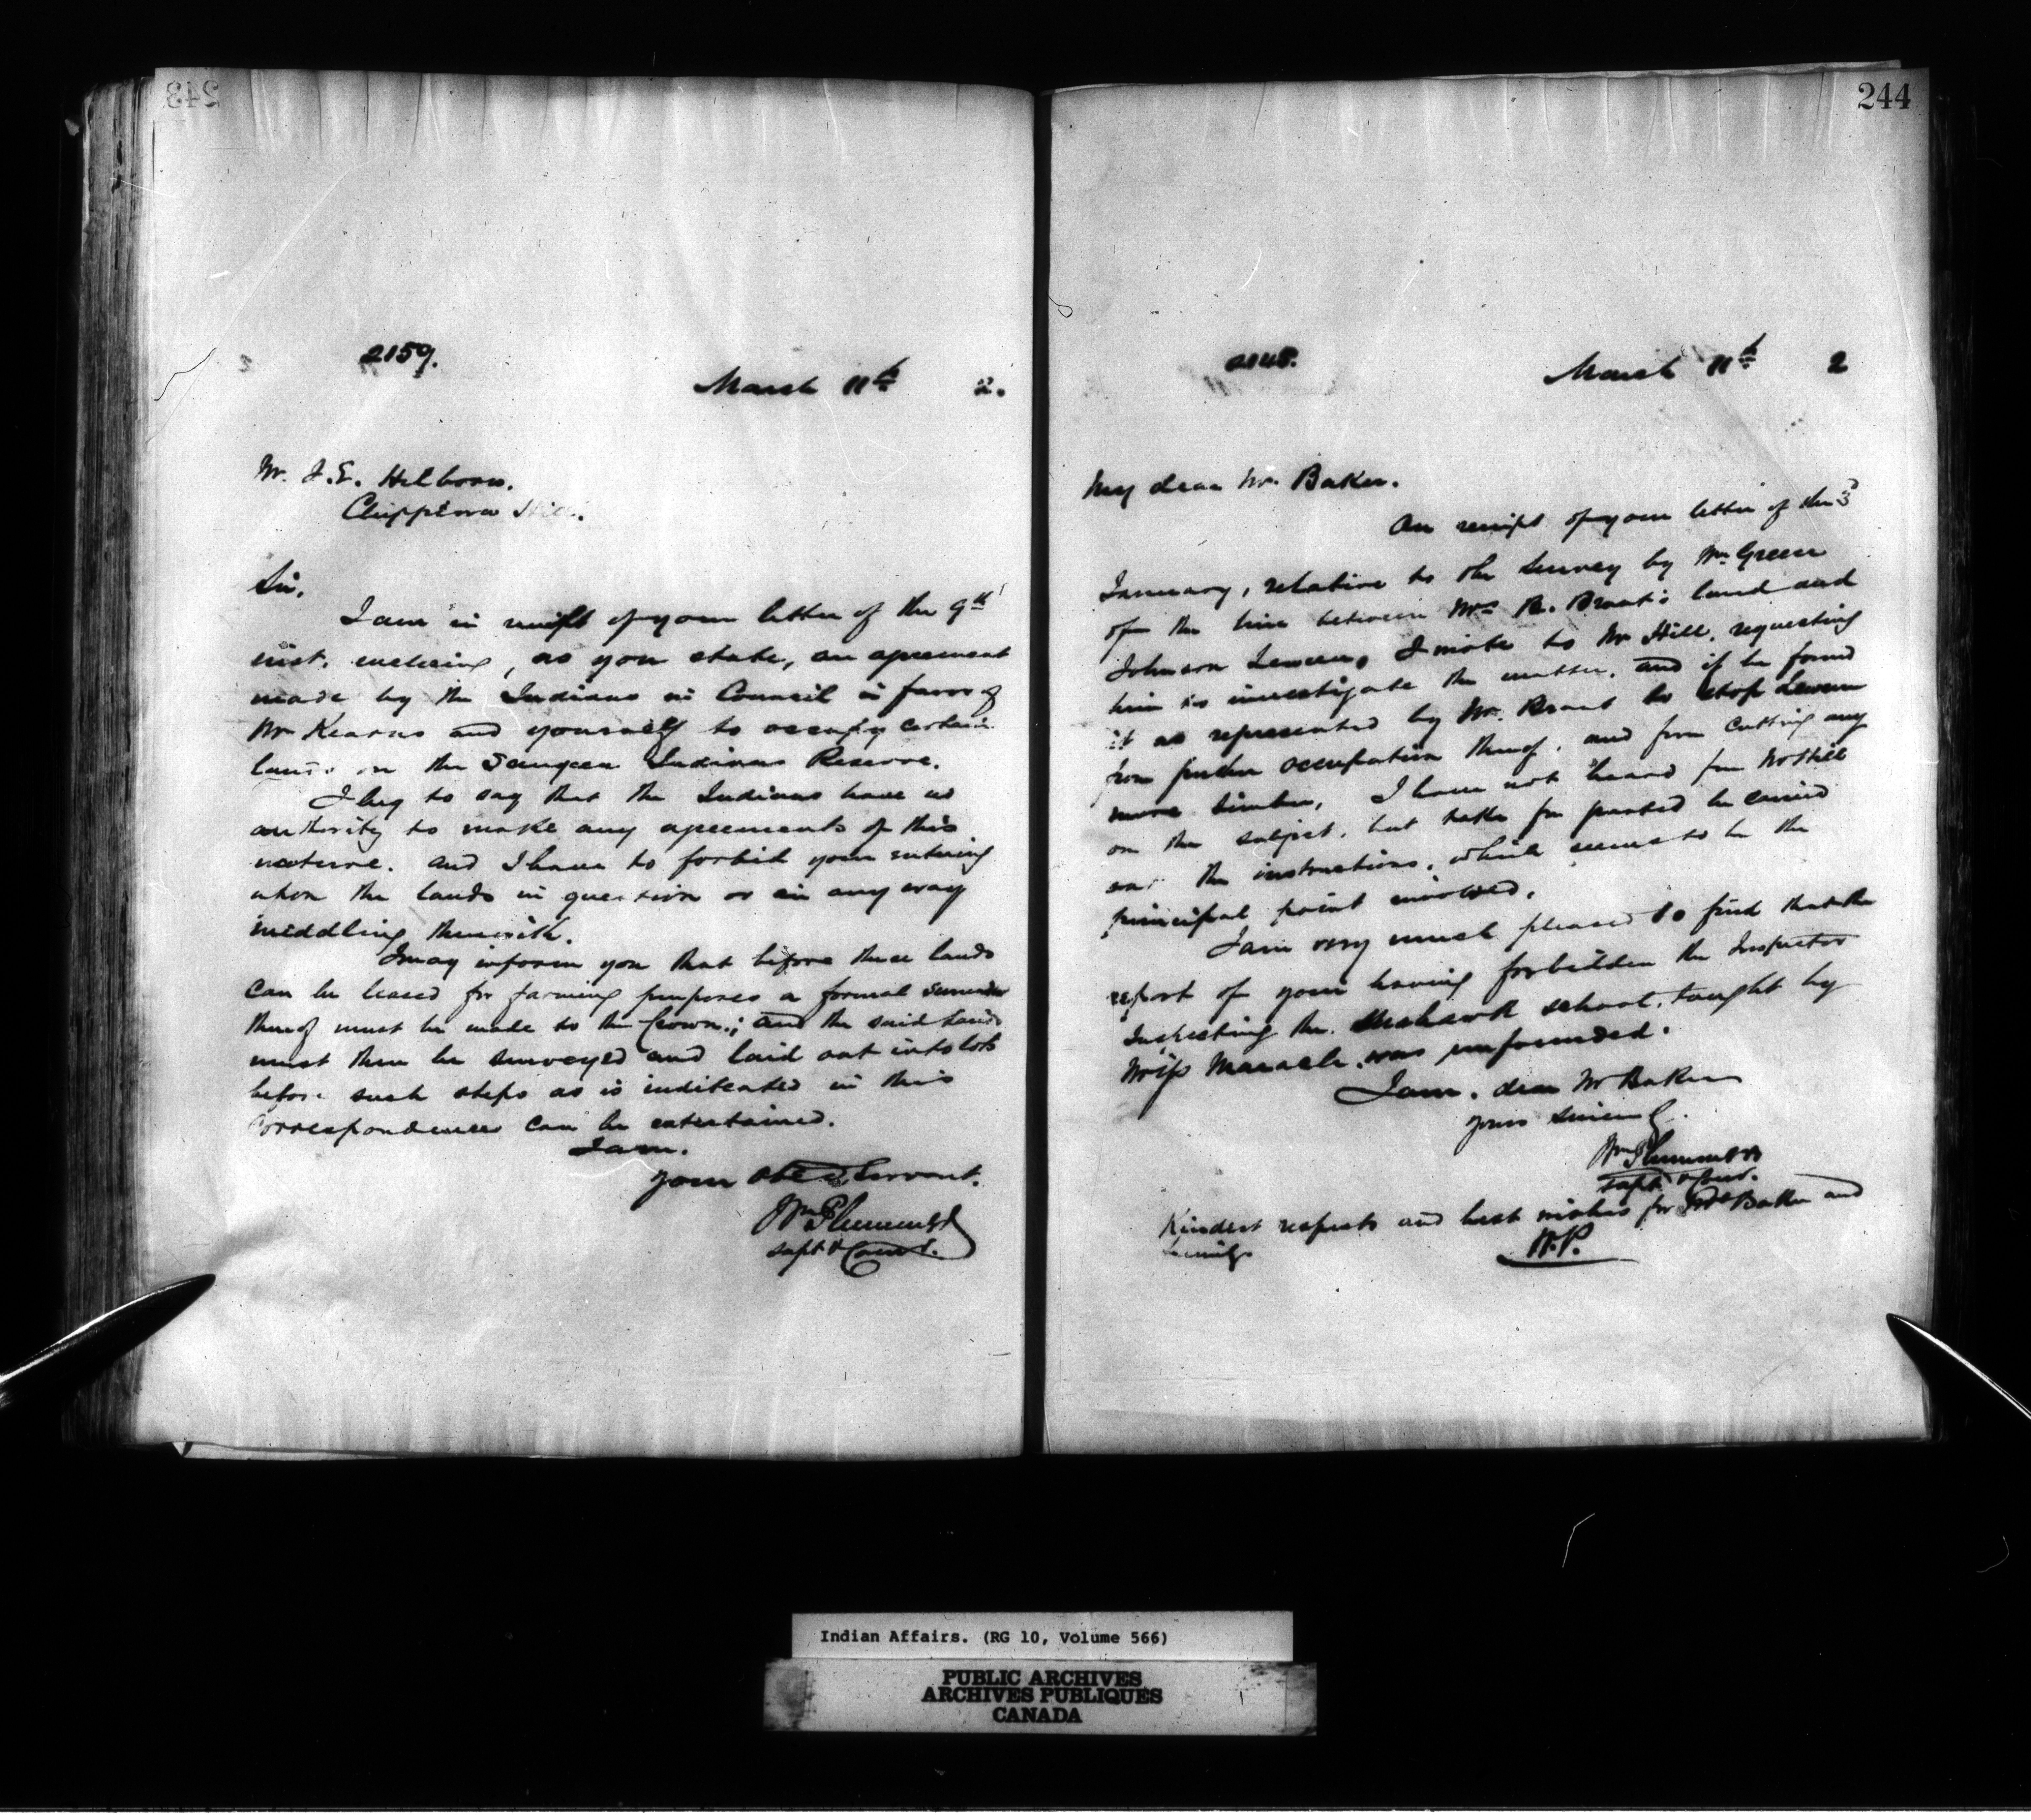 243
2159.
March 11th 2.
Mr. J. E. Hilborn.
Chippewa Hill.
Sir,
I am in receipt of your letter of the 9th
inst. enclosing, as you state, an agreement
made by the Indians in Council in favor of
Mr Kearns and yourself to occupy certain
lands on the Saugeen Indian Reserve.
I beg to say that the Indians have no
authority to make any agreements of this
nature. and I have to forbid your entering
upon the lands in question or in any way
middling therewith.
I may inform you that before these lands
can be leased for farming purposes a formal surrender
thereof must be made to the Crown; and the said lands
must then be surveyed and laid out into lots
before such steps as is inditcated in this
correspondence can be entertained.
I am.
your obed Servant.
Wm Plummer
Supt & Comr.
244
2148.
March 11th 2
My dear Mr. Baker.
On receipt of your letter of the 3
January, relative to the survey by Mr Green
of the line between Mrs B. Brant's land and
Johnson Lewis, I wrote to Mr Hill, requesting
him to investigate the matter, and if he found
it as represented by Mr. Brant to stop Lewis
from further occupation thereof, and from cutting any
more timber. I have not heard from Mr Hill
on the subject, but take for granted he carried
out the instructions, which seems to be the
principal point involved.
I am very much pleased to find that the
report of your having forbidden the Inspector
Inspecting the Mohawk school, taught by
Miss Maracle, was unfounded.
I am, dear Mr Baker
yours sincerely.
Wm Plummer
Supt & Comr.
Kindest respects and best wishes for Mrs Baker and
family
W.P.
Indian Affairs. (RG 10, Volume 566)
PUBLIC ARCHIVES
ARCHIVES PUBLIQUES
CANADA